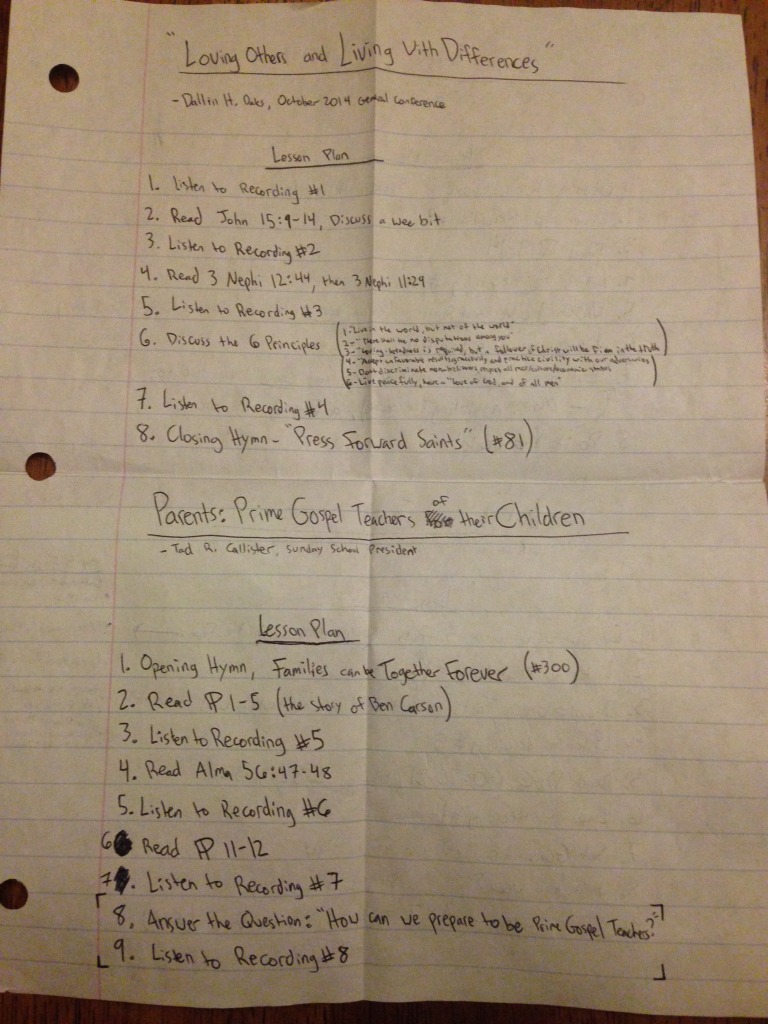 "Loving Others and Living With Differences"
- Dallin H. Oaks, October 2014 General Conference
Lesson Plan
1. Listen to Recording #1
2. Read John 15:9-14, Discuss a wee bit
3. Listen to Recording #2
4. Read 3 Nephi 12:44, then 3 Nephi 11:29
5. Listen to Recording #3
6. Discuss the 6 Principles
1-"Live in the world, but not of the world"
2-"There shall be no disputations among you"
3-"Loving-kindness is required, but a follower of Christ will be firm in the truth"
4-"Accept unfavorable results graciously and practice civility with our adversaries
5-Don't discriminate nonbelievers, respect all
6-Live peacefully, have a "love of God, and of all men"
7. Listen to Recording #4
8. Closing Hymn - "Press Forward Saints" (#81)
Parents: Prime Gospel Teachers of their Children
- Tad R. Callister, Sunday School President
Lesson Plan
1. Opening Hymn, Families can be Together Forever (#300)
2. Read PP 1-5 (the story of Ben Carson)
3. Listen to Recording #5
4. Read Alma 56:47-48
5. Listen to Recording #6
6 Read PP 11-12
7. Listen to Recording #7
8. Answer the Question: "How can we prepare to be Prime Gospel Teachers?"
9. Listen to Recording #8